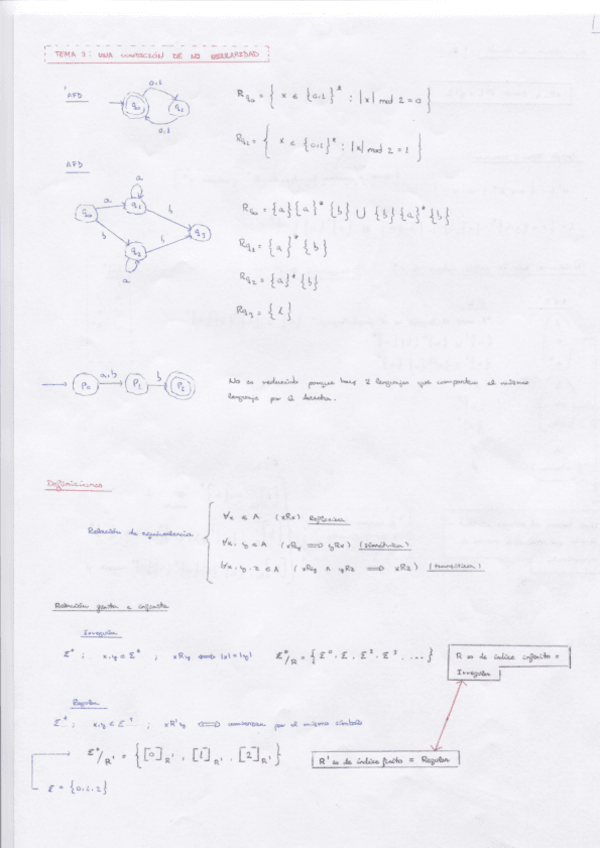 TEMA 3: UNA CONDICIÓN DE NO REGULARIDAD
AFD
0,1
q₀ q₁
0,1
Rq₀ = { x ∈ {0,1}* : |x| mod 2 = 0 }
Rq₁ = { x ∈ {0,1}* : |x| mod 2 = 1 }
AFD
a
q₀ a q₁ b
b q₂ b q₃
a
Rq₀ = {a}{a}*{b} ∪ {b}{a}*{b}
Rq₁ = {a}*{b}
Rq₂ = {a}*{b}
Rq₃ = {λ}
P₀ a,b P₁ b P₂
No es reducido porque hay 2 lenguajes que comparten el mismo
lenguaje por la derecha.
Definiciones
Relación de equivalencia:
∀x ∈ A (xRx) Reflexiva
∀x,y ∈ A (xRy ⟹ yRx) (simétrica)
∀x,y,z ∈ A (xRy ∧ yRz ⟹ xRz) (transitiva)
Relación finita e infinita
Irregular
Σ* ; x,y ∈ Σ* ; xRy ⟺ |x|=|y| Σ*/R = {Σ⁰, Σ, Σ², Σ³, ....}
R es de índice infinito =
Irregular
Regular
Σ* ; x,y ∈ Σ* ; xR'y ⟺ comienzan por el mismo símbolo
Σ*/R' = { [0]R', [1]R', [2]R' }
R' es de índice finito = Regular
Σ = {0,1,2}